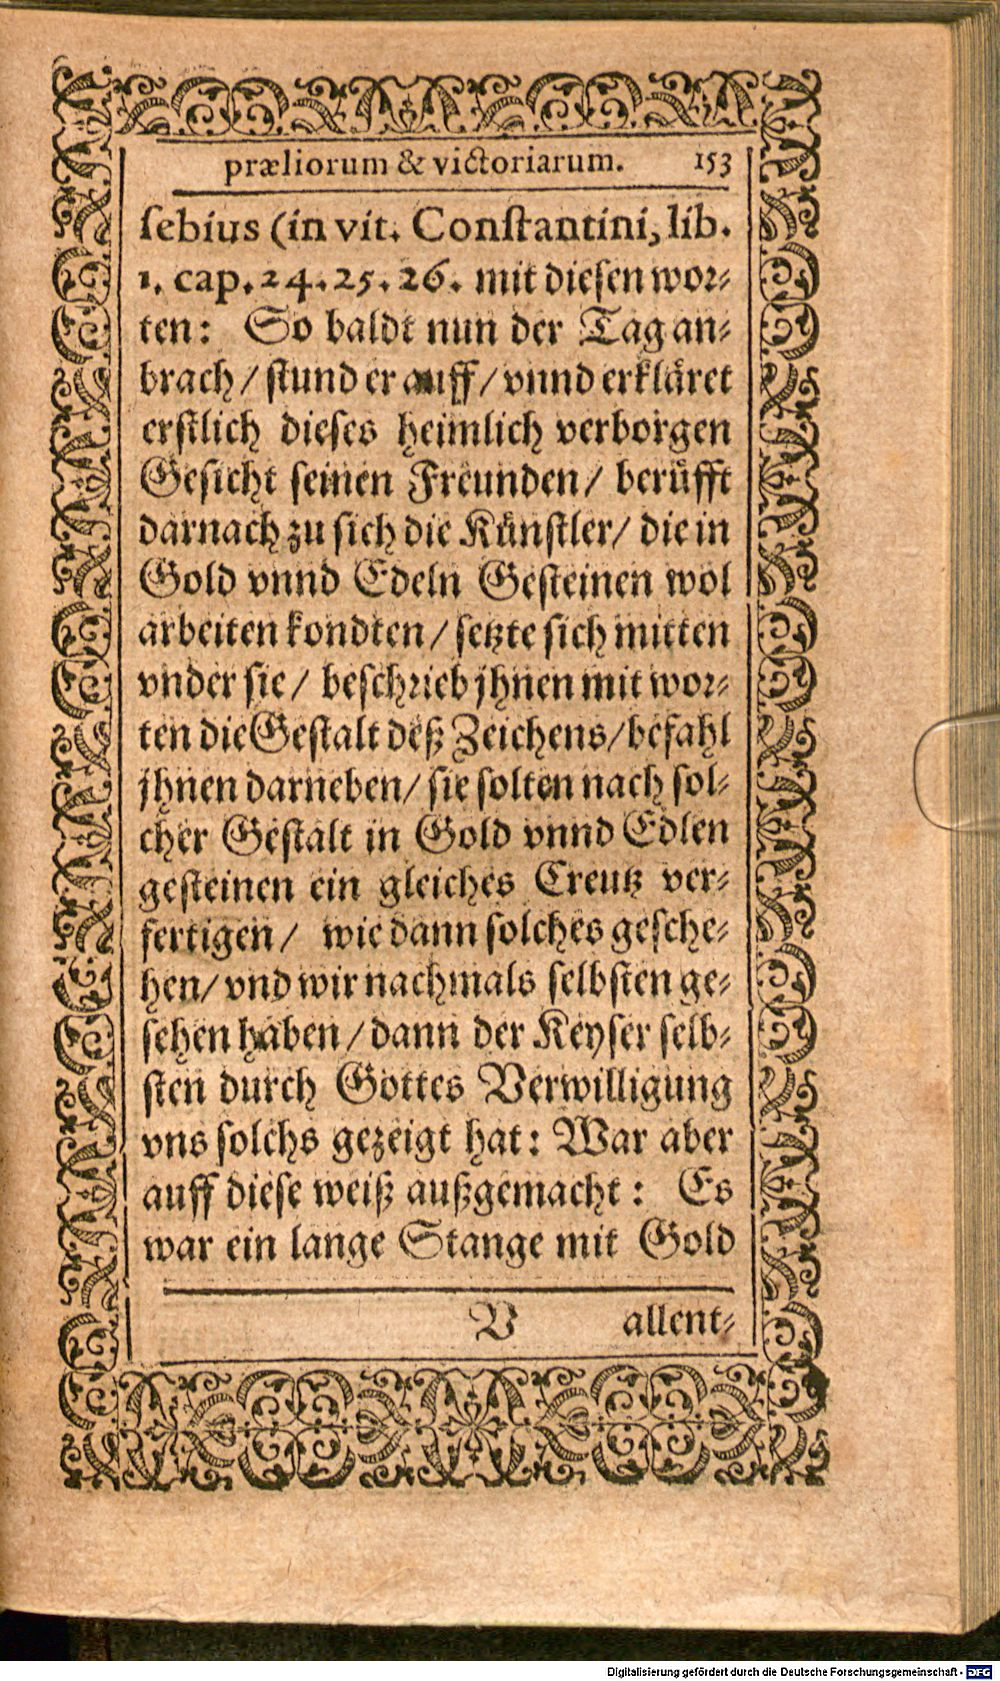 præliorum & victoriarum. 153
ſebius (in vit. Conſtantini, lib.
1. cap. 24. 25. 26. mit dieſen wor⸗
ten: So baldt nun der Tag an⸗
brach / ſtund er auff / vnnd erkläret
erſtlich dieſes heimlich verborgen
Geſicht ſeinen Freunden / berüfft
darnach zu ſich die Künſtler / die in
Gold vnnd Edeln Geſteinen wol
arbeiten kondten / ſetzte ſich mitten
vnder ſie / beſchrieb jhnen mit wor⸗
ten die Geſtalt deß Zeichens / befahl
jhnen darneben / ſie ſolten nach ſol⸗
cher Geſtalt in Gold vnnd Edlen
geſteinen ein gleiches Creutz ver⸗
fertigen / wie dann ſolches geſche⸗
hen / vnd wir nachmals ſelbſten ge⸗
ſehen haben / dann der Keyſer ſelb⸗
ſten durch Gottes Verwilligung
vns ſolchs gezeigt hat: War aber
auff dieſe weiß außgemacht: Es
war ein lange Stange mit Gold
V allent⸗
Digitalisierung gefördert durch die Deutsche Forschungsgemeinschaft - DFG